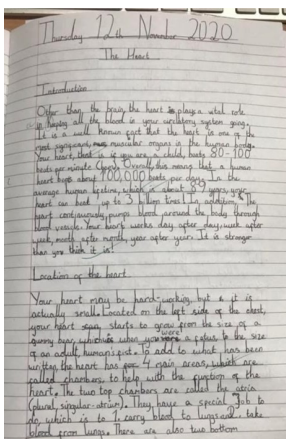 Thursday 12th November 2020
The Heart
Introduction
Other than the brain, the heart plays a vital role
in keeping all the blood in your circulatory system going.
It is a well known fact that the heart is one of the
most significant, muscular organs in the human body.
Your heart, that is if you are a child, beats 80-100
beats per minute. Overall, this means that a human
heart beats about 100,000 beats per day. In the
average human lifetime, which is about 89 years, your
heart can beat up to 3 billion times! In addition, The
heart continuously pumps blood around the body through
blood vessels. Your heart works day after day, week after
week, month after month, year after year. It is stronger
than you think it is!
Location of the heart
Your heart may be hard-working, but it is
actually small. Located on the left side of the chest,
your heart starts to grow from the size of a
gummy bear, which is when you were a fetus to the size
of an adult, human's fist. To add to what has been
written, the heart has 4 main areas, which are
called chambers, to help with the function of the
heart. The two top chambers are called the atria
(plural, singular-atrium). They have a special job to
do, which is to carry blood to lungs and take
blood from lungs. There are also two bottom